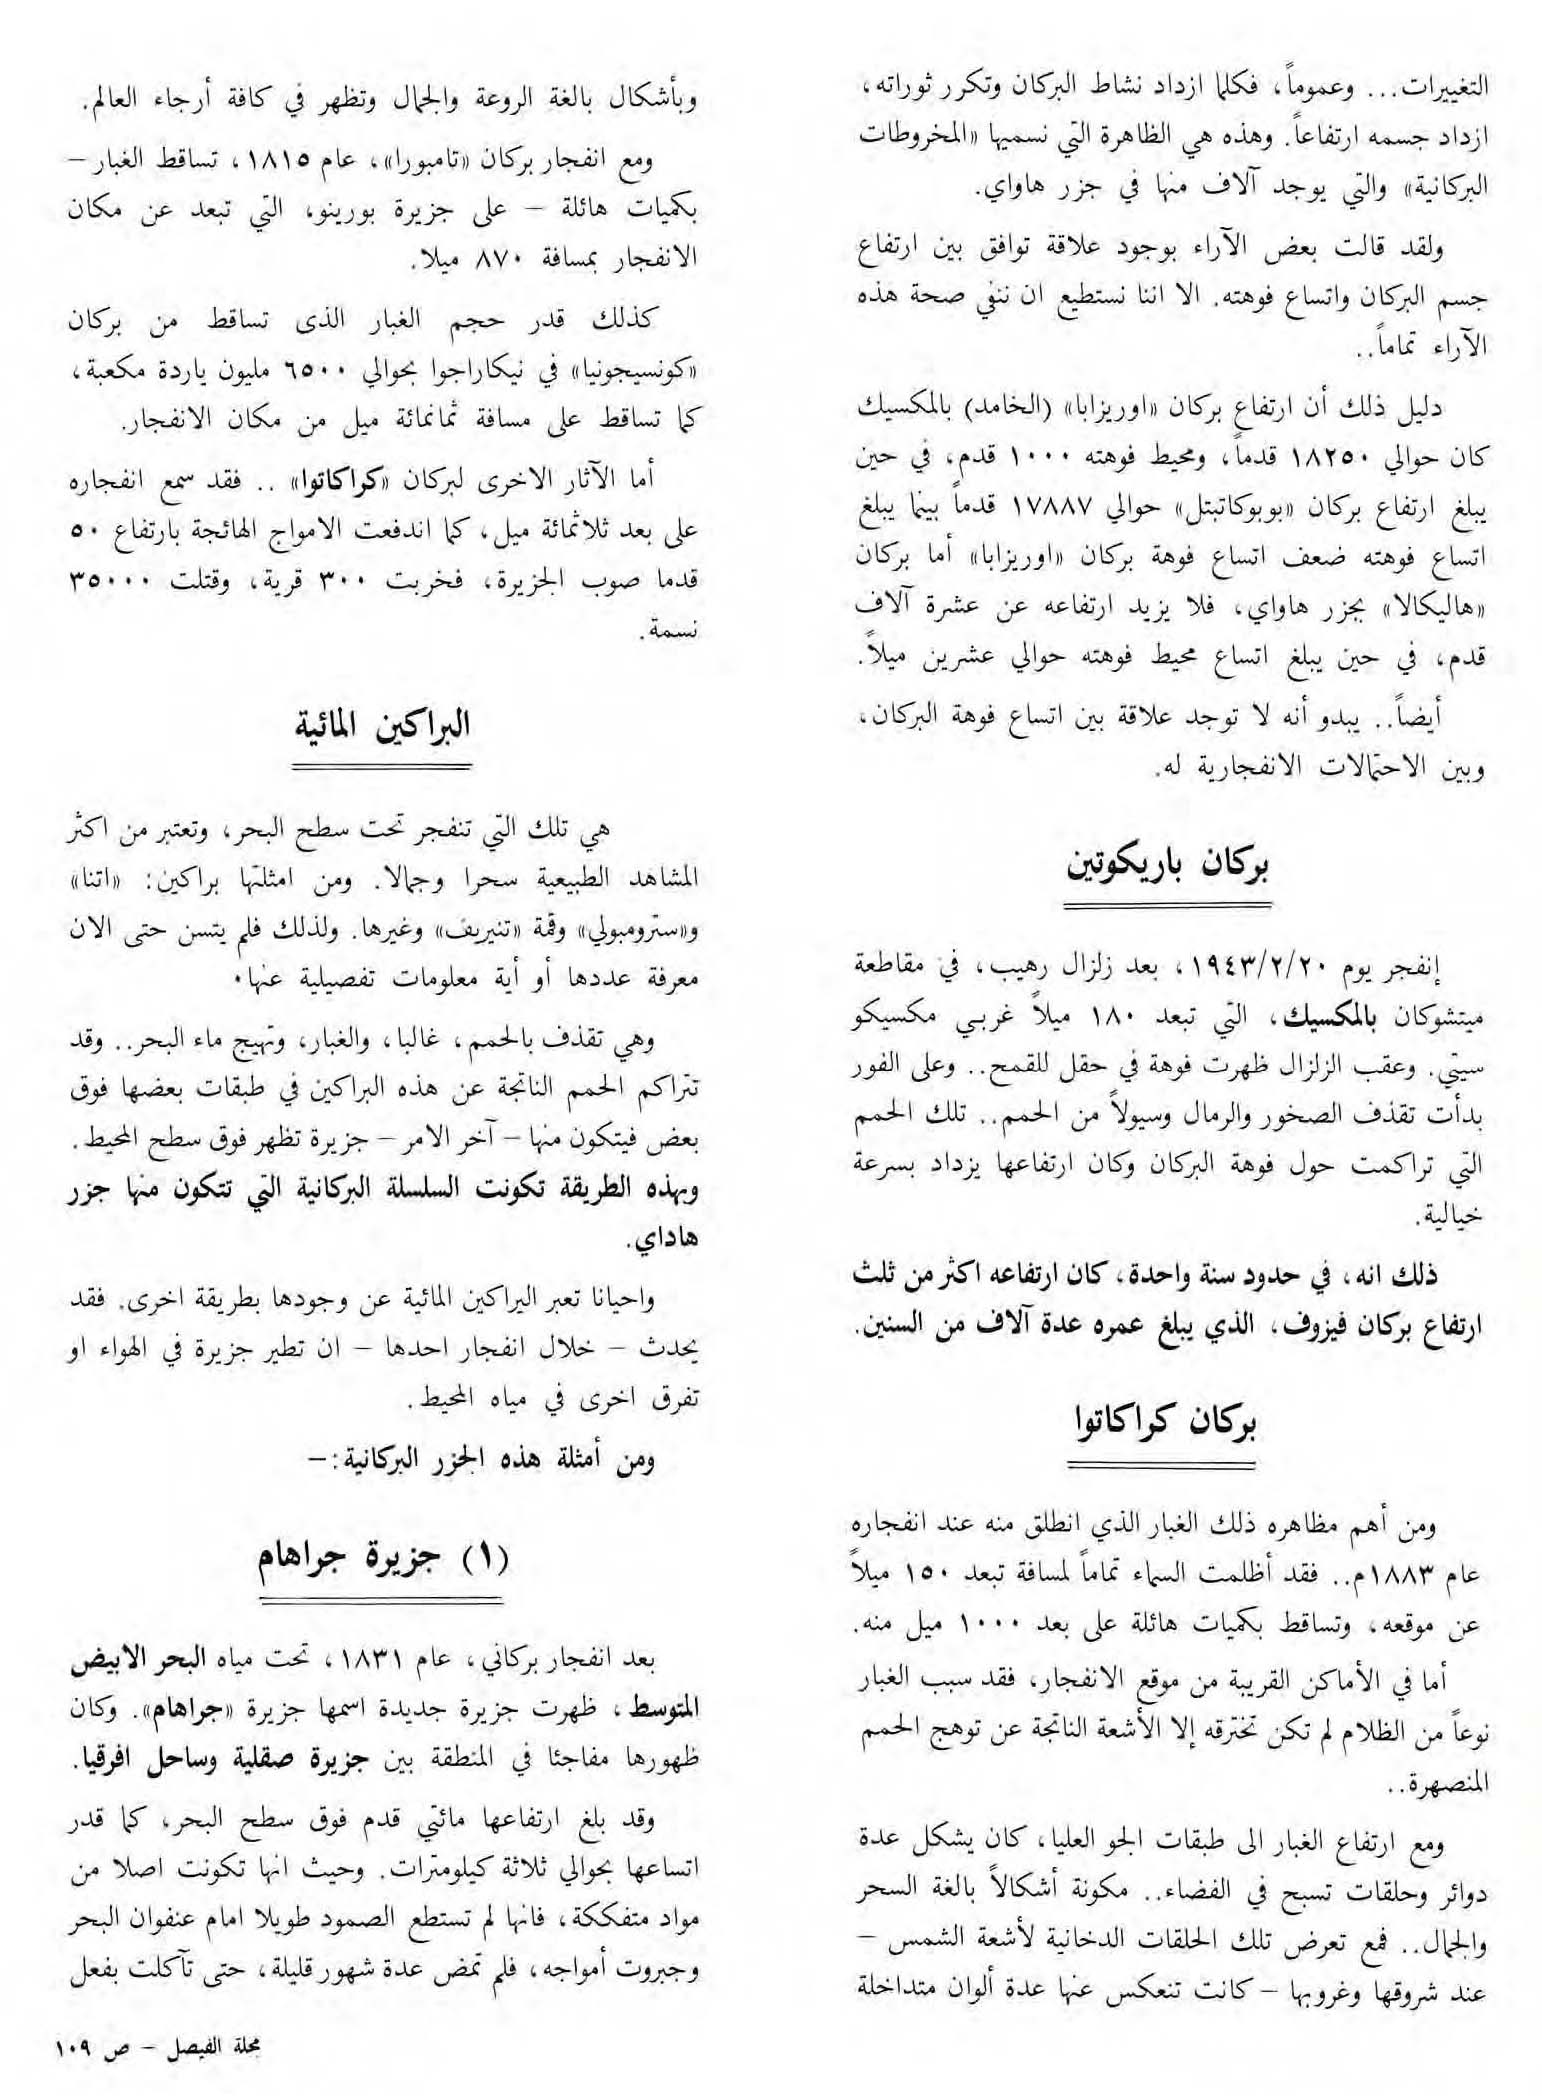 التغييرات... وعموماً، فكلما ازداد نشاط البركان وتكرر ثوراته،
ازداد جسمه ارتفاعاً. وهذه هي الظاهرة التي نسميها «المخروطات
البركانية» والتي يوجد آلاف منها في جزر هاواي.
ولقد قالت بعض الآراء بوجود علاقة توافق بين ارتفاع
جسم البركان واتساع فوهته. الا اننا نستطيع ان ننفي صحة هذه
الآراء تماماً..
دليل ذلك أن ارتفاع بركان «اوريزابا» (الخامد) بالمكسيك
كان حوالي ١٨٢٥٠ قدماً، ومحيط فوهته ١٠٠٠ قدم، في حين
يبلغ ارتفاع بركان «بوبوكاتبتل» حوالي ١٧٨٨٧ قدماً بينما يبلغ
اتساع فوهته ضعف اتساع فوهة بركان «اوريزابا» أما بركان
«هاليكالا» بجزر هاواي، فلا يزيد ارتفاعه عن عشرة آلاف
قدم، في حين يبلغ اتساع محيط فوهته حوالي عشرين ميلاً.
أيضاً.. يبدو أنه لا توجد علاقة بين اتساع فوهة البركان،
وبين الاحتمالات الانفجارية له.
بركان باريكوتين
إنفجر يوم ١٩٤٣/٢/٢٠، بعد زلزال رهيب، في مقاطعة
ميتشوكان بالمكسيك، التي تبعد ١٨٠ ميلاً غربي مكسيكو
سيتي. وعقب الزلزال ظهرت فوهة في حقل للقمح.. وعلى الفور
بدأت تقذف الصخور والرمال وسيولاً من الحمم.. تلك الحمم
التي تراكمت حول فوهة البركان وكان ارتفاعها يزداد بسرعة
خيالية.
ذلك انه، في حدود سنة واحدة، كان ارتفاعه اكثر من ثلث
ارتفاع بركان فيزوف، الذي يبلغ عمره عدة آلاف من السنين.
بركان كراكاتوا
ومن أهم مظاهره ذلك الغبار الذي انطلق منه عند انفجاره
عام ١٨٨٣م.. فقد أظلمت السماء تماماً لمسافة تبعد ١٥٠ ميلاً
عن موقعه، وتساقط بكميات هائلة على بعد ١٠٠٠ ميل منه.
أما في الأماكن القريبة من موقع الانفجار، فقد سبب الغبار
نوعاً من الظلام لم تكن تخترقه إلا الأشعة الناتجة عن توهج الحمم
المنصهرة..
ومع ارتفاع الغبار الى طبقات الجو العليا، كان يشكل عدة
دوائر وحلقات تسبح في الفضاء.. مكونة أشكالاً بالغة السحر
والجمال.. فمع تعرض تلك الحلقات الدخانية لأشعة الشمس –
عند شروقها وغروبها – كانت تنعكس عنها عدة ألوان متداخلة
وبأشكال بالغة الروعة والجمال وتظهر في كافة أرجاء العالم.
ومع انفجار بركان «تامبورا»، عام ١٨١٥، تساقط الغبار –
بكميات هائلة – على جزيرة بورينو، التي تبعد عن مكان
الانفجار بمسافة ٨٧٠ ميلا.
كذلك قدر حجم الغبار الذى تساقط من بركان
«كونسيجونيا» في نيكاراجوا بحوالي ٦٥٠٠ مليون ياردة مكعبة،
كما تساقط على مسافة ثمانمائة ميل من مكان الانفجار.
أما الآثار الاخرى لبركان «كراكاتوا» .. فقد سمع انفجاره
على بعد ثلاثمائة ميل، كما اندفعت الامواج الهائجة بارتفاع ٥٠
قدما صوب الجزيرة، فخربت ٣٠٠ قرية، وقتلت ٣٥٠٠٠
نسمة.
البراكين المائية
هي تلك التي تنفجر تحت سطح البحر، وتعتبر من اكثر
المشاهد الطبيعية سحرا وجمالا. ومن امثلتها براكين: «اتنا»
و«سترومبولي» وقمة «تنيريف» وغيرها. ولذلك فلم يتسن حتى الان
معرفة عددها أو أية معلومات تفصيلية عنها.
وهي تقذف بالحمم، غالبا، والغبار، وتهيج ماء البحر.. وقد
تتراكم الحمم الناتجة عن هذه البراكين في طبقات بعضها فوق
بعض فيتكون منها – آخر الامر – جزيرة تظهر فوق سطح المحيط.
وبهذه الطريقة تكونت السلسلة البركانية التي تتكون منها جزر
هاداي.
واحيانا تعبر اليراكين المائية عن وجودها بطريقة اخرى. فقد
يحدث – خلال انفجار احدها – ان تطير جزيرة في الهواء او
تفرق اخرى في مياه المحيط.
ومن أمثلة هذه الجزر البركانية:–
(١) جزيرة جراهام
بعد انفجار بركاني، عام ١٨٣١، تحت مياه البحر الابيض
المتوسط، ظهرت جزيرة جديدة اسمها جزيرة «جراهام». وكان
ظهورها مفاجئا في المنطقة بين جزيرة صقلية وساحل افرقيا.
وقد بلغ ارتفاعها مائتي قدم فوق سطح البحر، كما قدر
اتساعها بحوالي ثلاثة كيلومترات. وحيث انها تكونت اصلا من
مواد متفككة، فانها لم تستطع الصمود طويلا امام عنفوان البحر
وجبروت أمواجه، فلم تمض عدة شهور قليلة، حتى تآكلت بفعل
مجلة الفيصل – ص ١٠٩